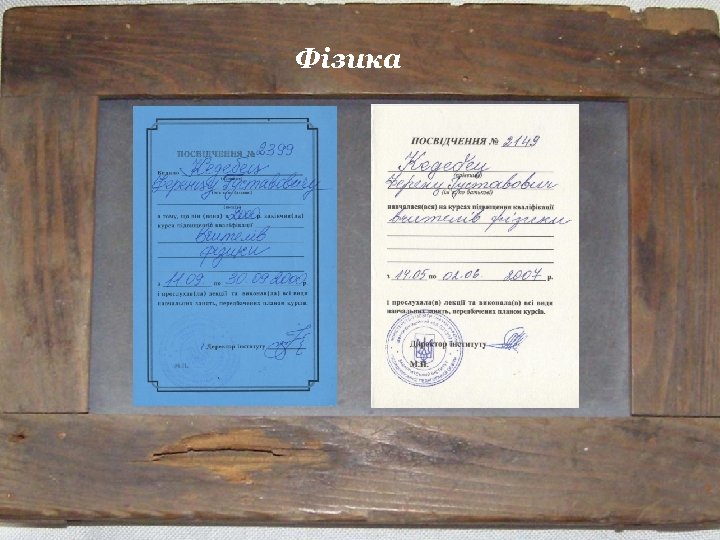 Фізика
ПОСВІДЧЕННЯ № 2399
Видано Кедебец
Ференцу Густавовичу
в тому, що він (вона) в 2000 р. закінчив(ла)
курси підвищення кваліфікації
вчителів
фізики
з 11.09 по 30.09.2000 р.
і прослухав(ла) лекції та виконав(ла) всі види
навчальних занять, передбачених планом курсів.
Директор інституту
М.П.
ПОСВІДЧЕННЯ № 2149
Кедебец
(прізвище)
Ференц Густавович
(ім'я, по батькові)
навчалася(вся) на курсах підвищення кваліфікації
вчителів фізики
з 14.05 по 02.06. 2007 р.
і прослухала(в) лекції та виконала(в) всі види
навчальних занять, передбачених планом курсів.
Директор інституту
М.П.